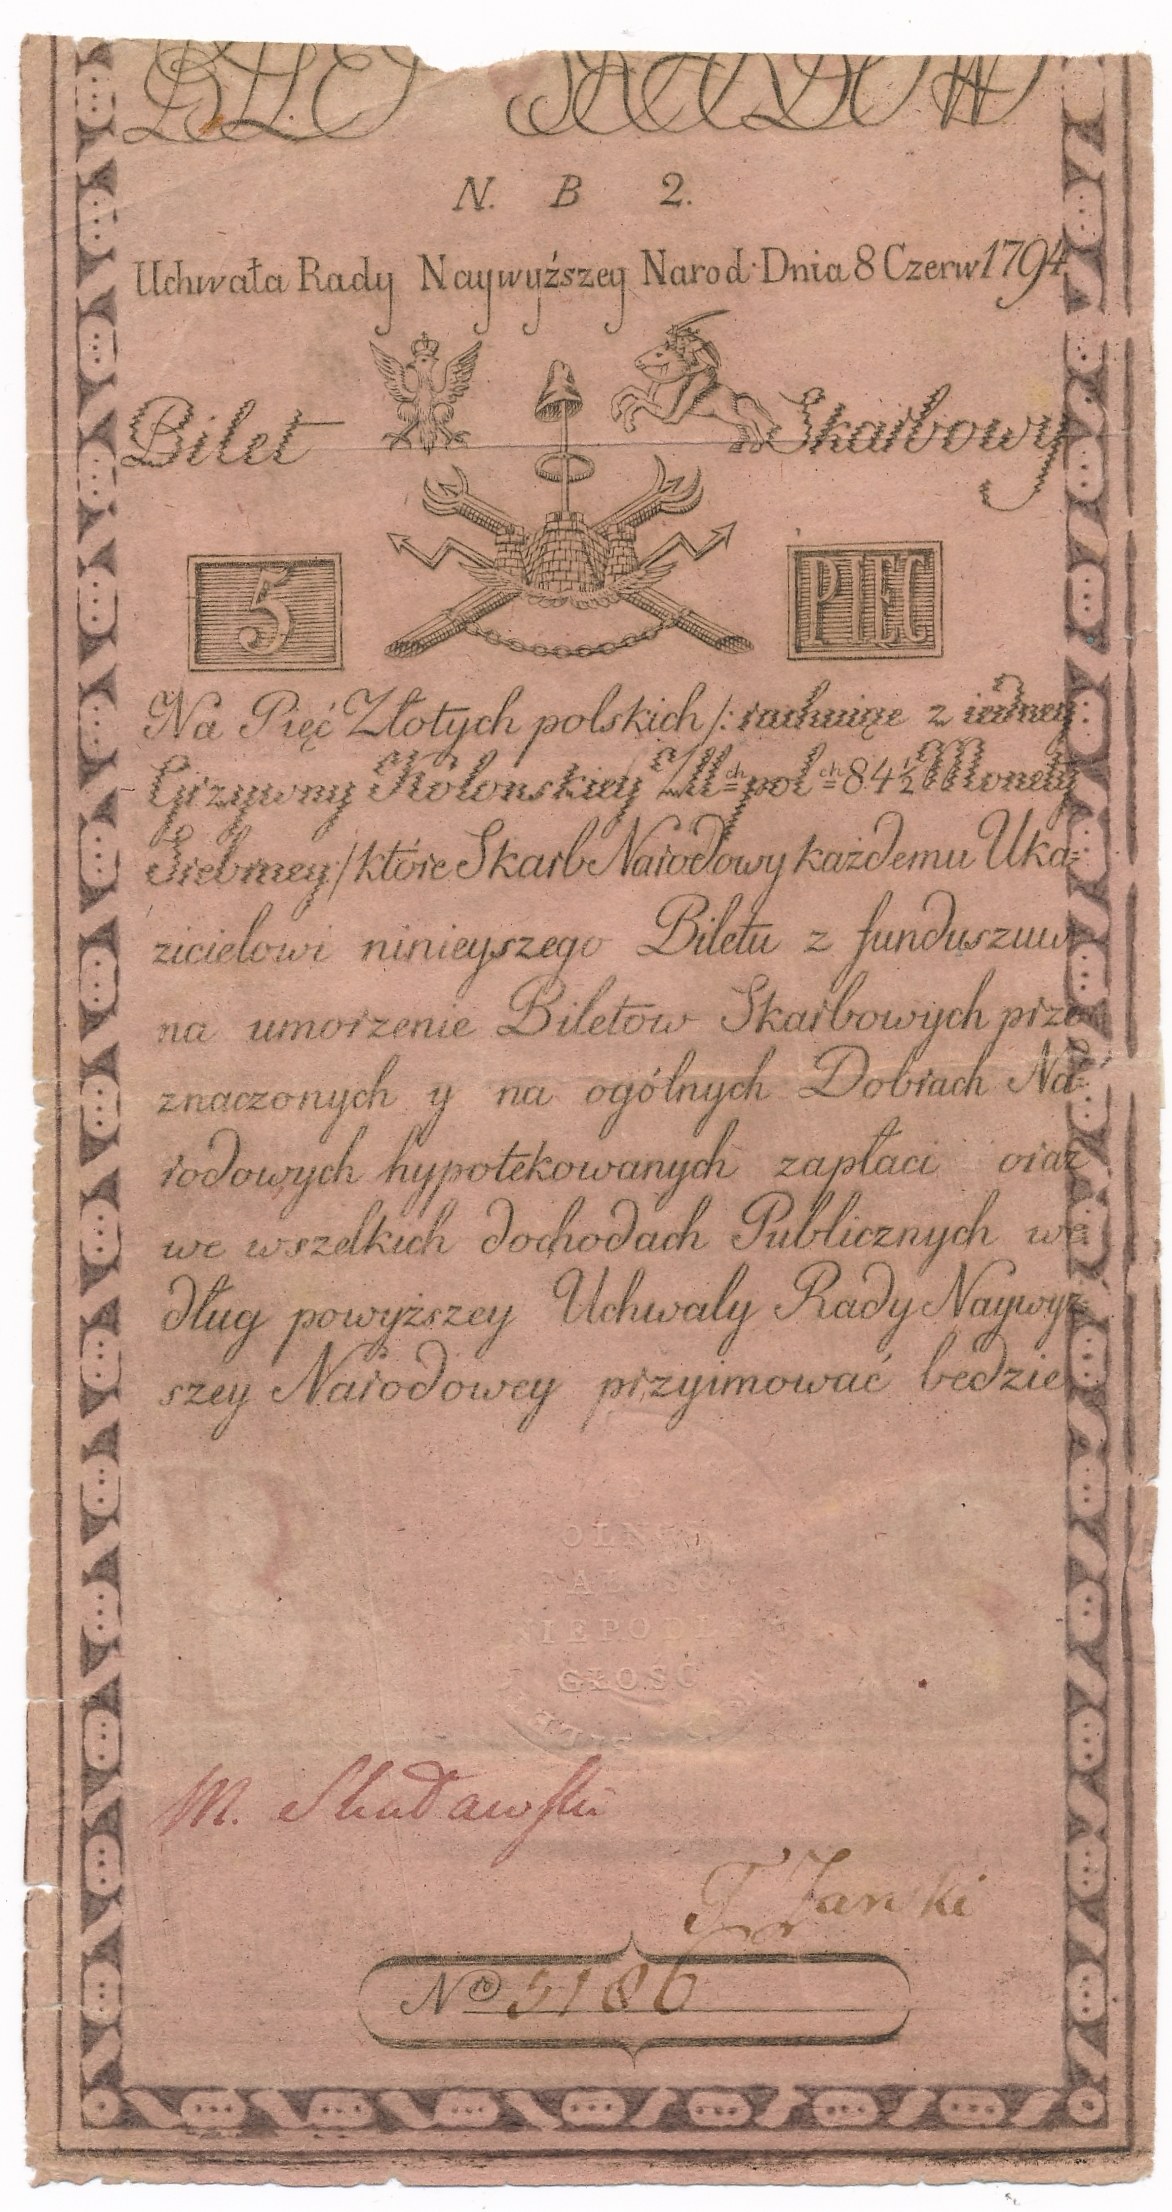 BILET SKARBOWY
N. B 2.
Uchwała Rady Naywyższey Narod: Dnia 8 Czerw 1794
Bilet Skarbowy
5 PIĘC
Na Pięć Złotych polskich /: rachuiąc z iedney
Grzywny Kolonskiey Zll ch pol ch 84 1/2 Monety
Srebrney :/ które Skarb Narodowy każdemu Uka=
zicielowi ninieyszego Biletu z funduszuw
na umorzenie Biletow Skarbowych prze
znaczonych y na ogólnych Dobrach Na=
rodowych hypotekowanych zapłaci oraz
we wszelkich dochodach Publicznych we
dług powyższey Uchwaly Rady Naywyż
szey Narodowey przyimować będzie
B S
OLNOŚ
CAŁOŚĆ
NIEPODLE
GŁOŚĆ
M. Skudawski
T Zarski
No 5186